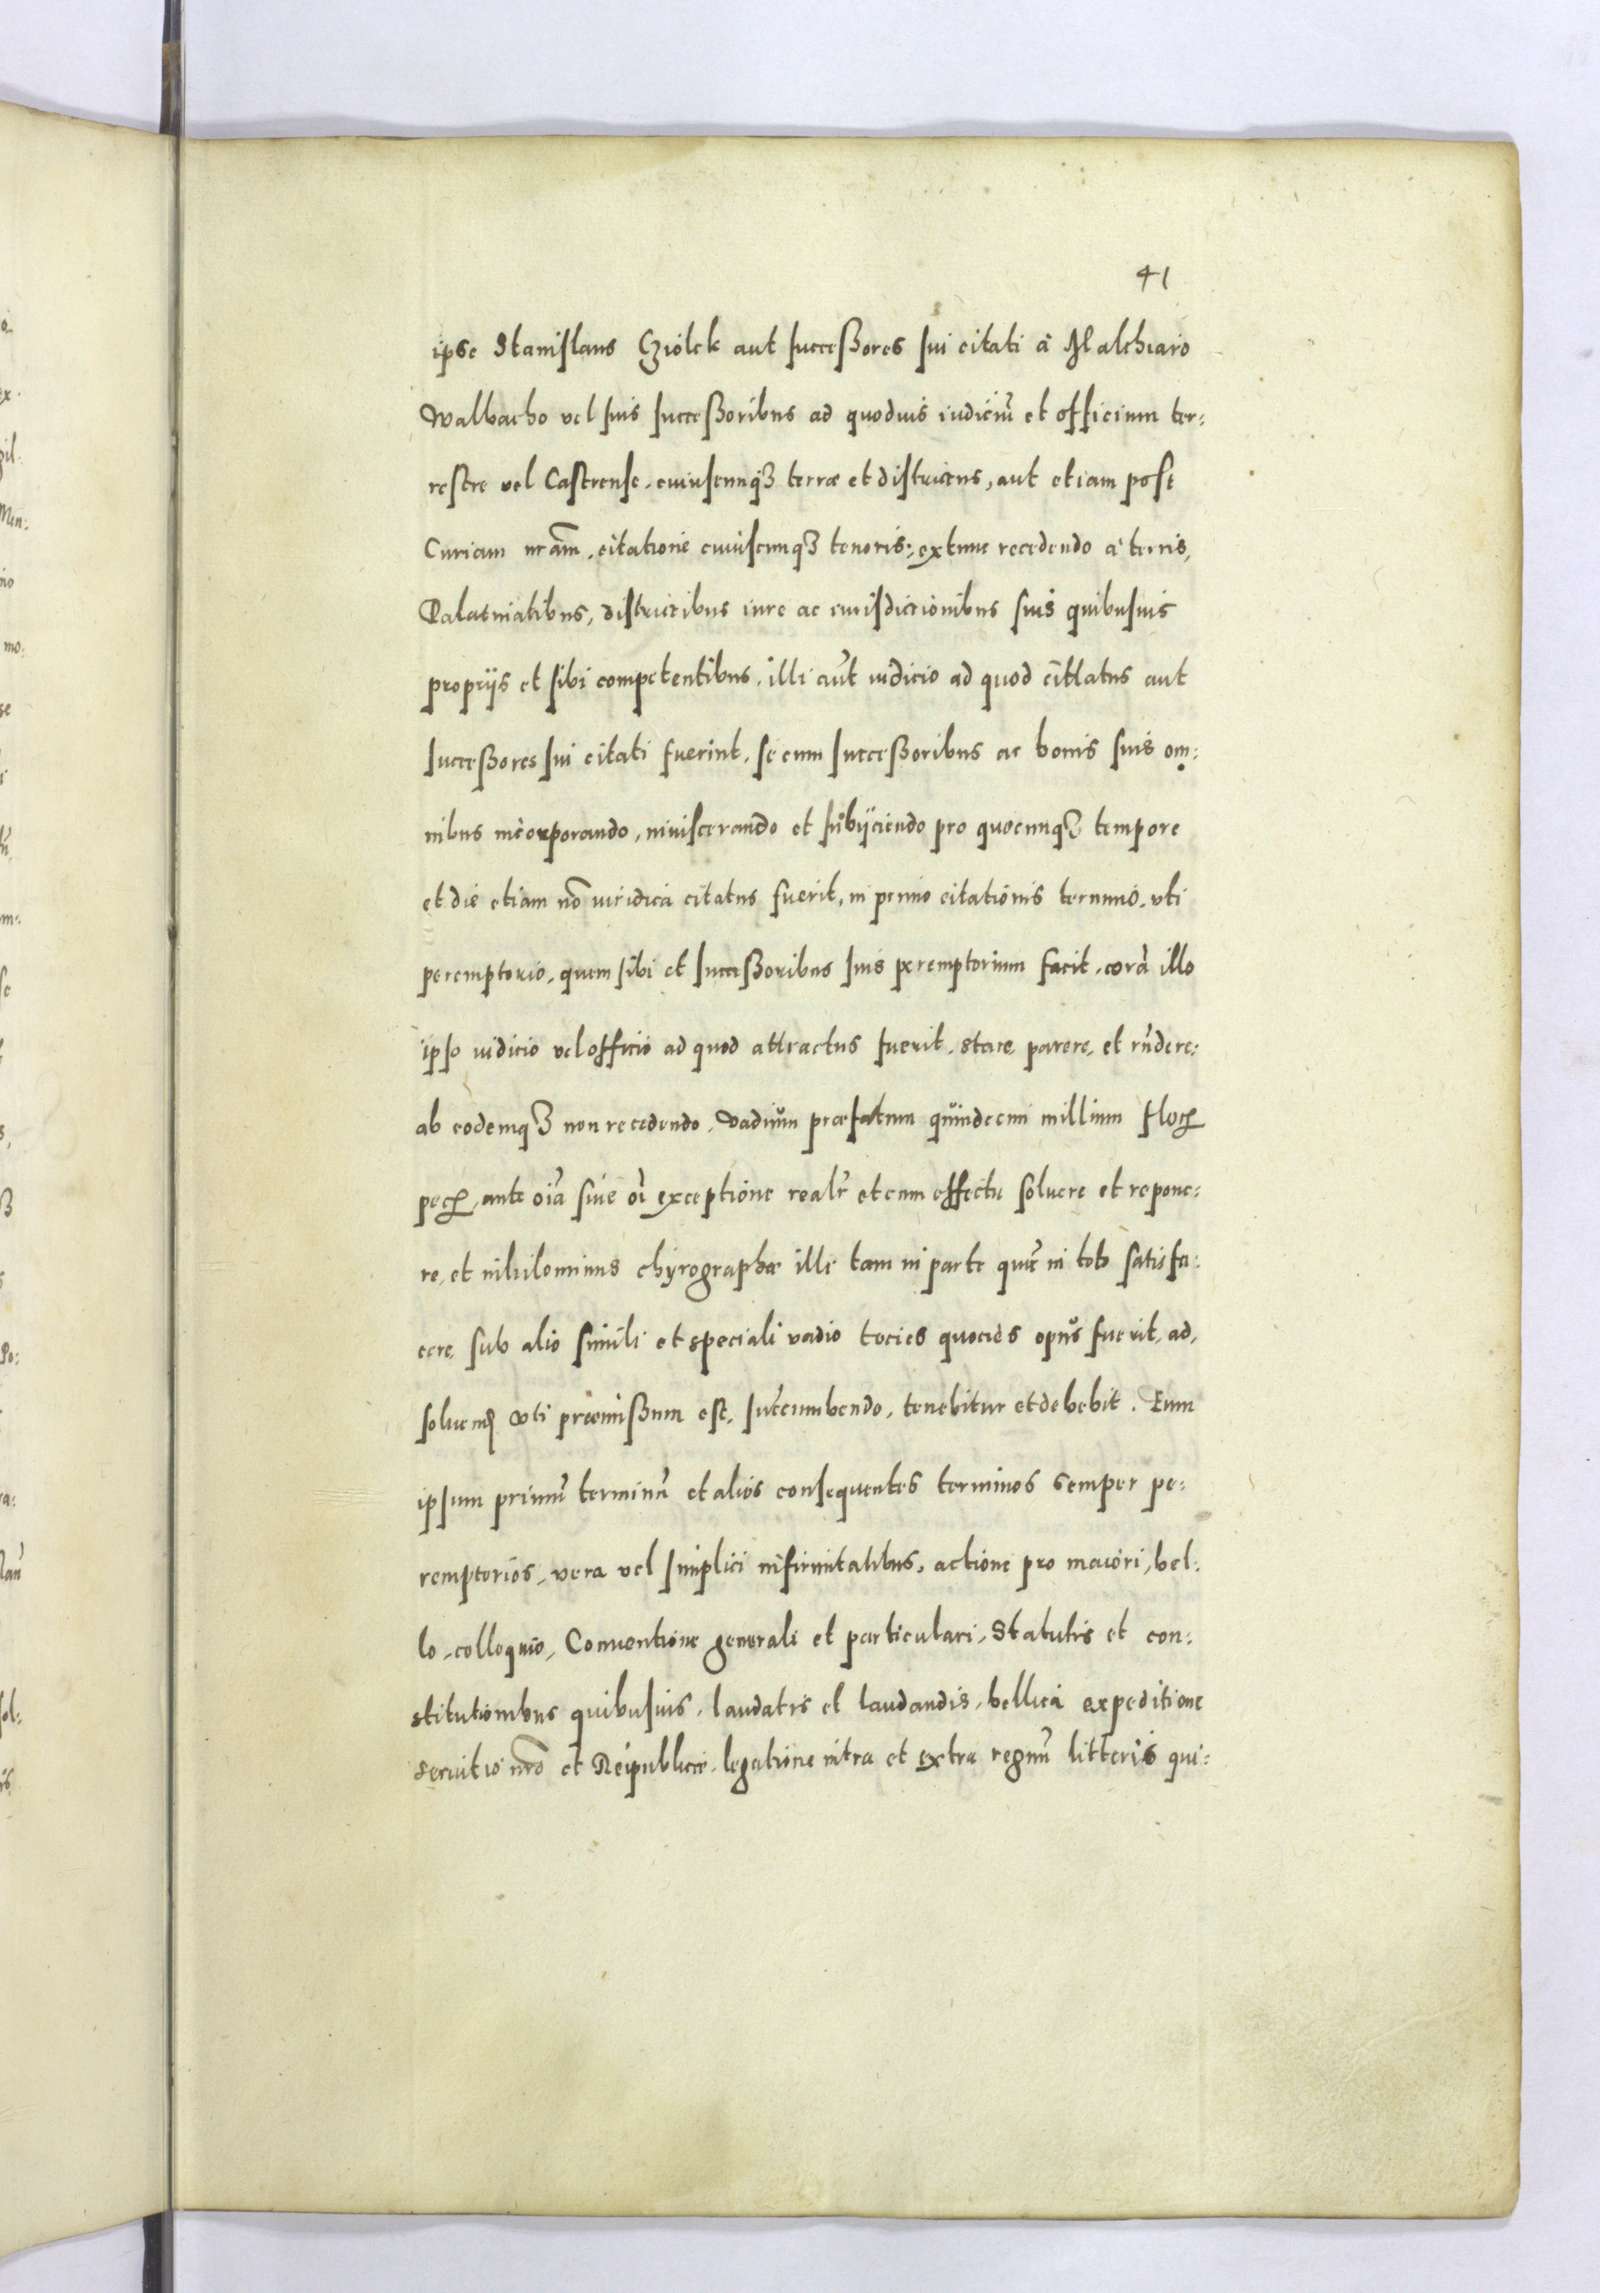 41
ipse Stanislaus Cziolek aut successores sui citati à Malchiaro
Walbacho vel suis successoribus ad quoduis iudiciũ et officium ter:
restre vel Castrense, cuiuscunqȝ terræ et districtus, aut etiam post
Curiam nr̃am, citatione cuiuscunqȝ tenoris, extunc recedendo à terris,
Palatinatibus, districtibus iure ac iurisdictionibus suis quibusuis
proprijs et sibi competentibus, illi aũt iudicio ad quod citatus aut
successores sui citati fuerint, se cum successoribus ac bonis suis om:
nibus incorporando, inuiscerando et subijciendo pro quocunqȝ tempore
et die etiam nõ iuridica citatus fuerit, in primo citationis termino, vti
peremptorio, quem sibi et successoribus suis peremptorium facit, corã illo
ipso iudicio vel officio ad quod attractus fuerit, stare, parere, et rñdere:
ab eodemqȝ non recedendo, vadium præfatum quindecim millium floꝝ
pecꝝ, ante oĩa siue oĩ exceptione realr̃ et cum effectu soluere et repone:
re, et nihilominus chyrographæ illi tam in parte quã in toto satisfa:
cere, sub alio simili et speciali vadio tocies quocies opus fuerit, ad,
soluenđ vti præmissum est, succumbendo, tenebitur et debebit. Eum
ipsum primũ terminũ et alios consequentes terminos semper pe:
remptorios, vera vel simplici infirmitatibus, actione pro maiori, bel:
lo, colloquio, Conuentione generali et particulari, Statutis et con:
stitutionibus quibusuis, laudatis et laudandis, bellica expeditione
seruitio nr̃o et Reipublicæ, legatione intra et extra regnũ litteris qui: